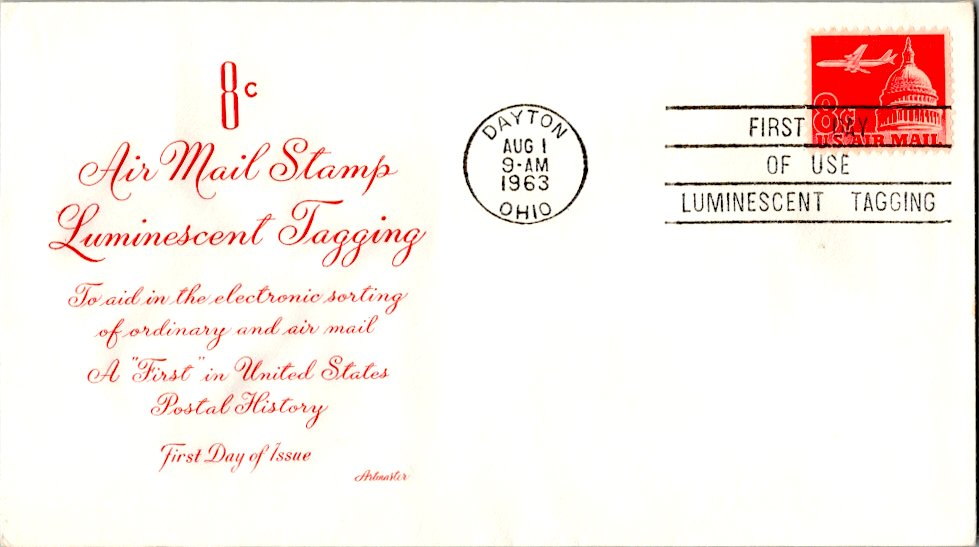 8c
Air Mail Stamp
Luminescent Tagging
To aid in the electronic sorting
of ordinary and air mail
A "First" in United States
Postal History
First Day of Issue
Artmaster
DAYTON
AUG 1
9-AM
1963
OHIO
8c
U.S. AIR MAIL
FIRST DAY
OF USE
LUMINESCENT TAGGING